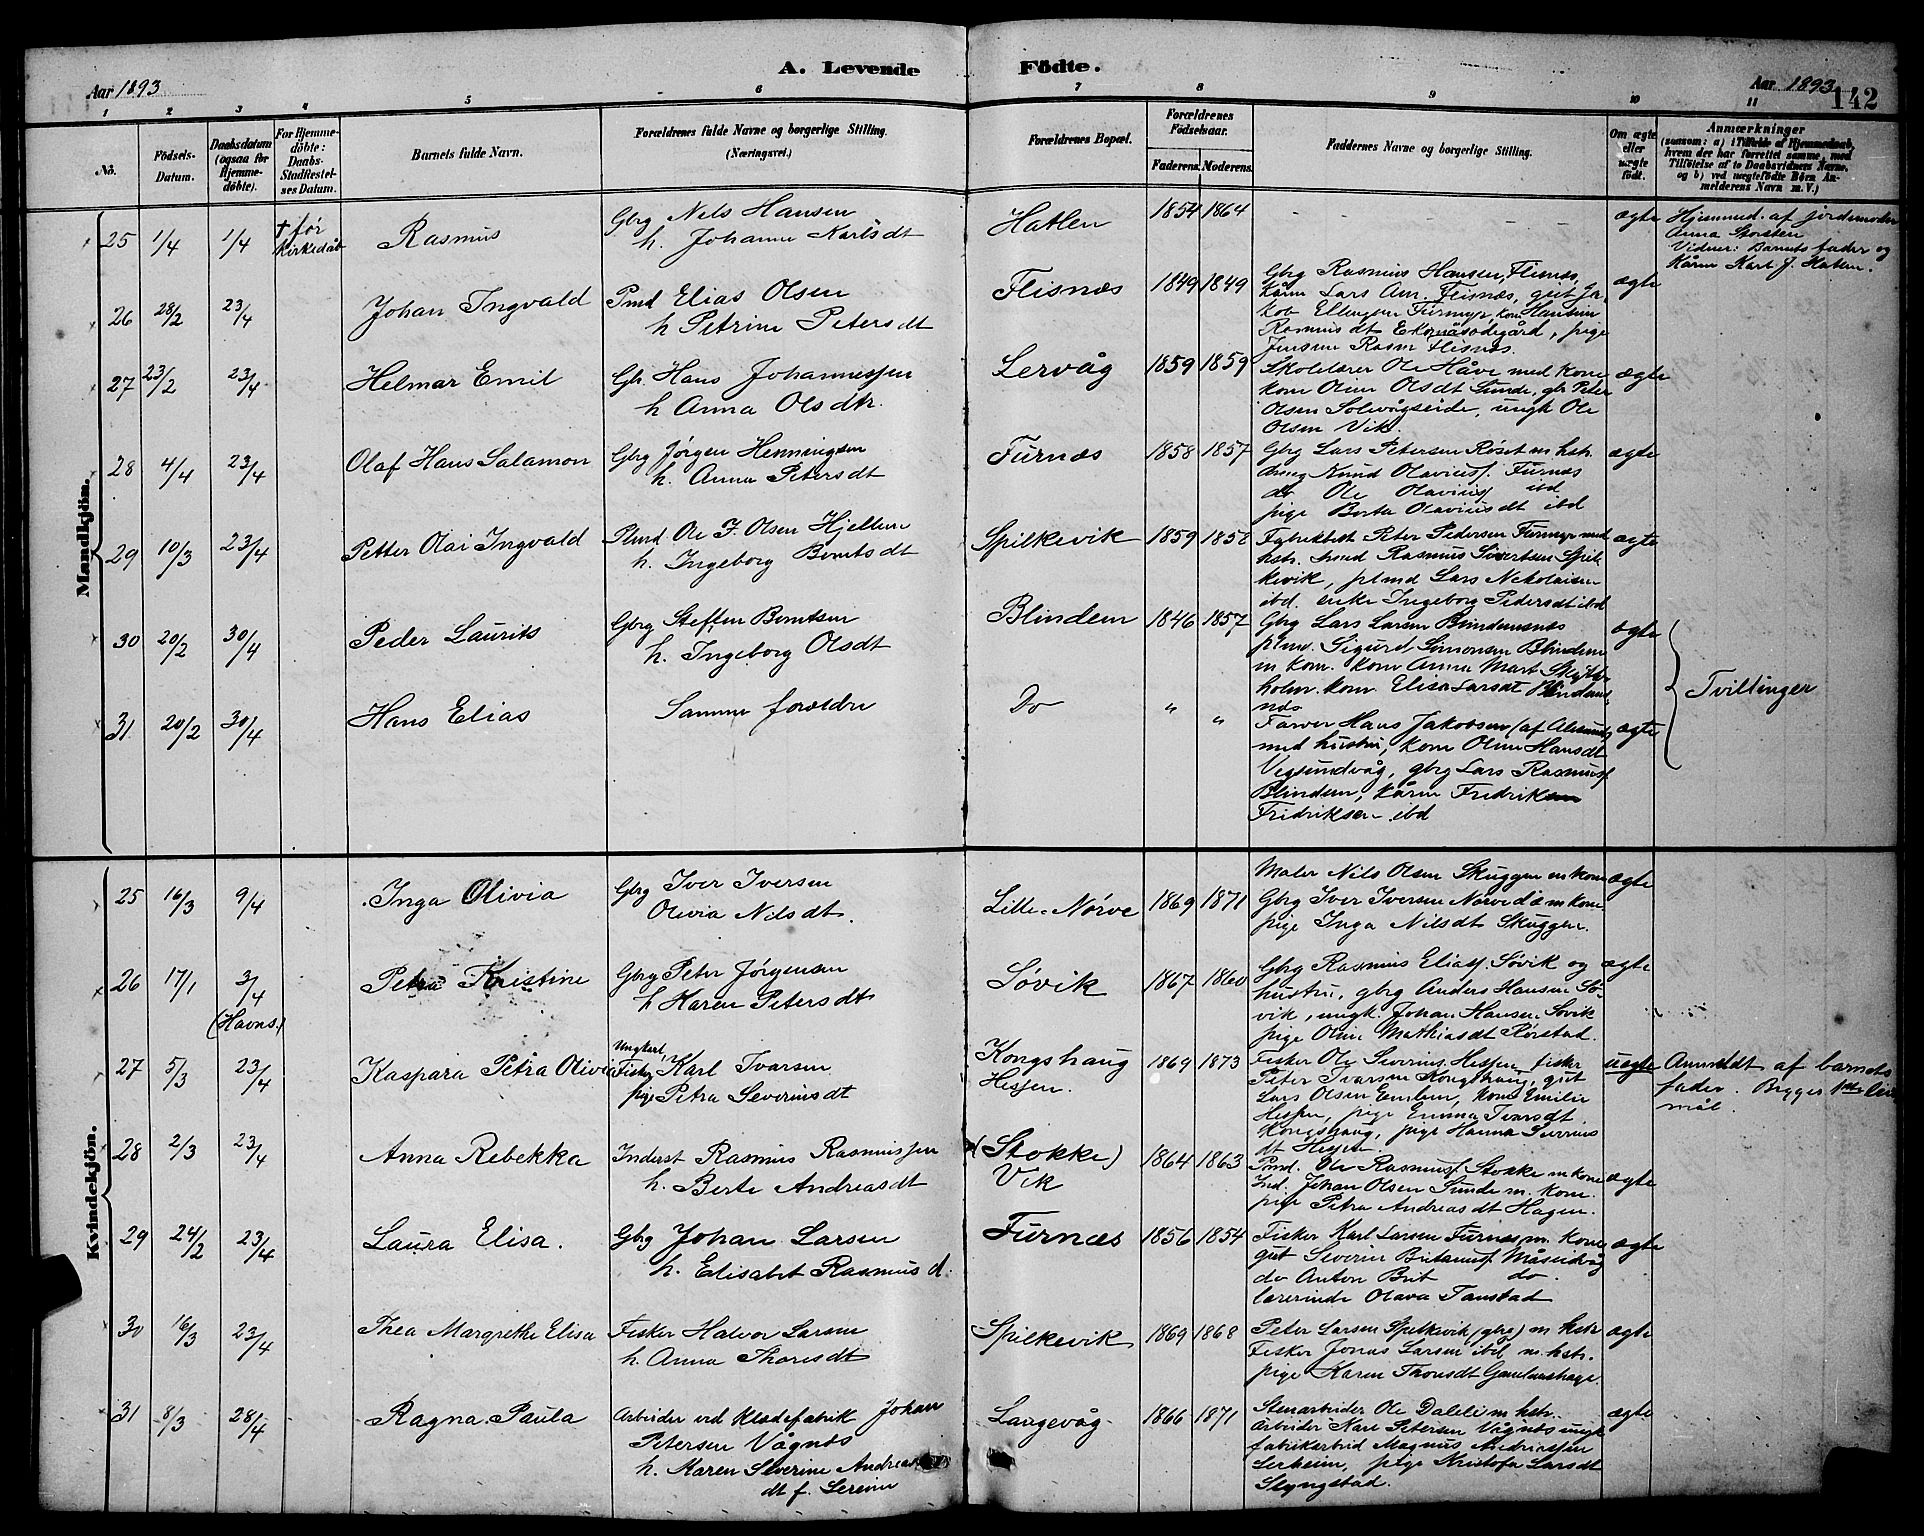 A. Levende Födte.
Aar 1893 Aar 1893 142
1 2 3 4 5 6 7 8 9 10 11
No.
Födsels-Datum.
Daabsdatum (ogsaa for Hjemme-döbte).
For Hjemme-döbte: Daabs-Stadfæstel-ses Datum.
Barnets fulde Navn.
Forældrenes fulde Navne og borgerlige Stilling. (Næringsvei.)
Forældrenes Bopæl.
Forældrenes Födselsaar.
Faderens. Moderens.
Faddernes Navne og borgerlige Stilling.
Om ægte eller uægte födt.
Anmærkninger
(saasom: a) i Tilfælde af Hjemmedaab, hvem der har forrettet samme, med Tilföielse af to Daabsvidners Navne, og b) ved uægtefödte Börn An-melderens Navn m. V.)
Mandkjön.
25 1/4 1/4 † før kirkedåb Rasmus Gbrg Nels Hansen
h. Johanne Karlsdt
Hatlen 1854 1864 - - - ægte Hjemmed. af jordemoder
Anna Storsten
Vidner: Barnets fader og
Kårm Karl J. Hatlen.
26 28/2 23/4 Johan Ingvald Pmd Elias Olsen
h Petrine Petersdt
Flisnæs 1849 1849 Gbrg Rasmus Hansen, Flisnæs,
Kårm Lars Am. Flisnæs, gut Ja
kob Ellingsen Furmyr, kone Hansine
Rasmusdt Ekornåsødegård, pige
Jensine Rasm Flisnæs.
ægte
27 23/2 23/4 Helmar Emil Gb. Hans Johannessen
h Anna Olsdtr.
Lervåg 1859 1859 Skolelærer Ole Håve med kone
kone Oline Olsdt Sunde, gbr Peter
Olsen Solevågseide, ungk Ole
Olsen Vik.
ægte
28 4/4 23/4 Olaf Hans Salamon Gbrg Jørgen Henningsen
h. Anna Petersdt
Furnæs 1858 1857 Gbrg Lars Petersen Røset m hstr.
dreng Knud Olaviusf. Furnæs
do Ole Olaviusf ibd
pige Berta Olaviusdt ibd
ægte
29 10/3 23/4 Petter Olai Ingvald Plmd Ole J. Olsen Hjellen
h. Ingeborg Berntsdt
Spilkevik 1859 Peter Pedersen Furmyr med
hstr. Rasmus Sivertsen Spil
kevik, plmd Lars Nikolaisen
ibd. enke Ingeborg Pedersdt ibd
ægte
30 20/2 30/4 Peder Laurits Gbrg Steffen Berntsen
h. Ingeborg Olsdt
Blindem 1846 1857 Gbrg Lars Larsen Blindemsnæs
plmd. Sigurd Simonsen Blindem
m kone. kone Anna Mart.
holm. kone Elisa Larsdt Blindem
næs
ægte
Tvillinger
31 20/2 30/4 Hans Elias Samme forældre
Do " " Farver Hans Jakobsen (af Alesund)
med hustru, kone Oline Hansdt
Vegsundvåg, gbrg Lars Rasmusf
Blindem, kårm Fredrik
Fridriksen ibd
ægte
Kvindekjön.
25 16/3 9/4 Inga Olivia Gbrg Iver Iversen
Olivia Nilsdt.
Lille-Nørve 1869 1871 Maler Nils Olsen Skuggen m kone
Gbrg Iver Iversen Nørve m kone
pige Inga Nilsdt Skuggen.
ægte
26 17/1 3/4 (Havns.) Petra Kristine Gbrg Peter Jørgensen
h Karen Petersdt
Søvik 1867 1860 Gbrg Rasmus Eliasf. Søvik og
hustru, gbrg Anders Hansen Sø-
vik, ungk. Johan Hansen Søvik
pige Oline Mathiasdt Rørstad.
ægte
27 5/3 23/4 Kaspara Petra Olivia Ungkarl,
Fisker Karl Ivarsen
pige Petra Severinsdt
Kongshaug
Hessen.
1869 1873 Fisker Ole Severins Hessen, fisker
Peter Ivarsen Kongshaug, gut
Lars Olsen Emlem, kone Emilie
Hessen, pige Emma Ivarsdt
Kongshaug, pige Hanna Severins
dt Hessen
uægte Anmeldt af barnets
fader. Begges 1ste leier
mål.
28 2/3 23/4 Anna Rebekka Inderst Rasmus Rasmussen
h. Berte Andreasdt
(Stokke)
Vik
1864 1863 Pmd. Ole Rasmusf. Stokke m kone
Ind. Johan Olsen Sunde m. kone.
pige Petra Andreasdt Hagen.
ægte
29 24/2 23/4 Laura Elisa. Gbrg Johan Larsen
h. Elisabet Rasmusd.
Furnæs 1856 1854 Fisker Karl Larsen Furnæs m. kone
gut Severin Måseidvåg
do Anton Brit do.
lærerinde Olava Tanstad
ægte
30 16/3 23/4 Thea Margrethe Elisa Fisker Halvor Larsen
h. Anna Thoresdt
Spilkevik 1869 1868 Peter Larsen Spilkevik (gbrg) m hstr
Fisker Jonas Larsen ibd. m. hstr.
pige Karen
ægte
31 8/3 28/4 Ragna Paula Arbeider ved Klædefabrik Johan
Petersen Vågnæs
h. Karen Severine Andreas
dt f.
Langevåg 1866 1871 Stenarbeider Ole Dalsli m hstr.
arbeider Karl Petersen Vågnæs ungk
fabrikarbeid Magnus Andreassen
Lerheim, pige Kristofa Larsdt
Slyngstad.
ægte